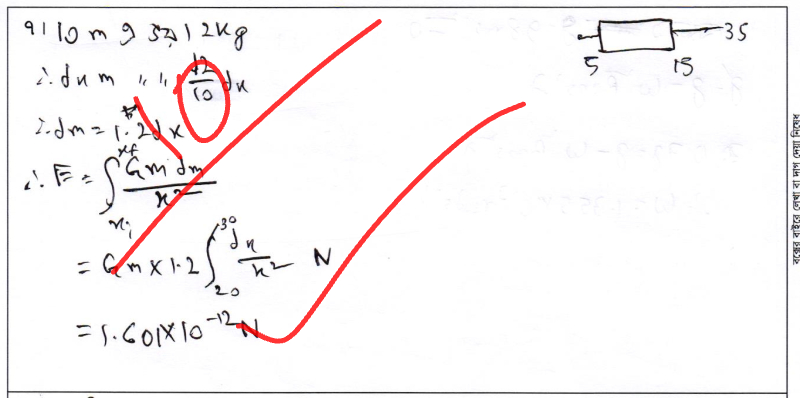 ৭। 10 m এ ভর 12kg
∴ dx m " " 12/10 dx
∴ dm = 1.2 dx
∴ F = ∫_{xi}^{xf} Gm dm / x²
= Gm × 1.2 ∫_{20}^{30} dx / x² N
= 1.601 × 10^{-12} N
5 15 35
বক্সের বাইরে লেখা বা দাগ দেয়া নিষেধ